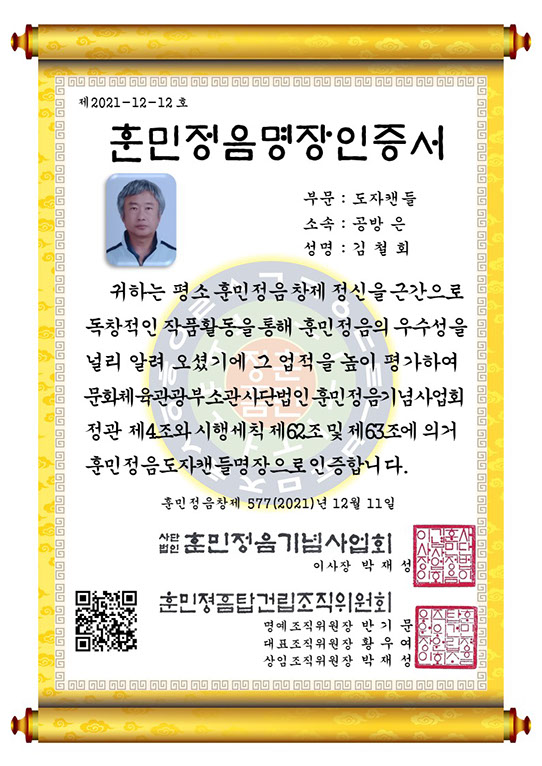 제2021-12-12호
훈민정음명장인증서
부문 : 도자캔들
소속 : 공방 은
성명 : 김철회
귀하는 평소 훈민정음 창제 정신을 근간으로
독창적인 작품활동을 통해 훈민정음의 우수성을
널리 알려 오셨기에 그 업적을 높이 평가하여
문화체육관광부 소관 사단법인 훈민정음기념사업회
정관 제4조와 시행세칙 제62조 및 제63조에 의거
훈민정음도자캔들명장으로 인증합니다.
훈민정음창제 577(2021)년 12월 11일
사단법인 훈민정음기념사업회
이사장 박재성
훈민정음탑건립조직위원회
명예조직위원장 반기문
대표조직위원장 황우여
상임조직위원장 박재성